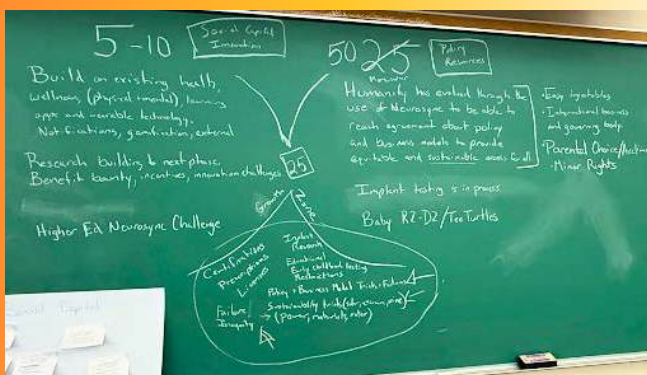 5-10
Social Capital
Innovation
Build on existing health,
wellness, (physical + mental), learning
apps and wearable technology.
Notifications, gamification, external
Research building to next phase.
Benefit bounty, incentives, innovation challenges
Higher Ed Neurosync Challenge
25
Growth Zone
50 25
Policy
Resources
Humanity has evolved through the
use of Neurosync to be able to
reach agreement about policy
and business models to provide
equitable and sustainable access for all
Implant testing is in process
Baby R2-D2/TeeTurtles
• Easy injectables
• International business
and governing body
• Parental Choice/
• Minor Rights
Certifications
Prescriptions
Licenses
Failure,
Inequity
Implant
Research
Educational
Early childhood testing
Restrictions
Policy + Business Model Trials + Failures
Sustainability trials
(power, materials, water)
Social Capital